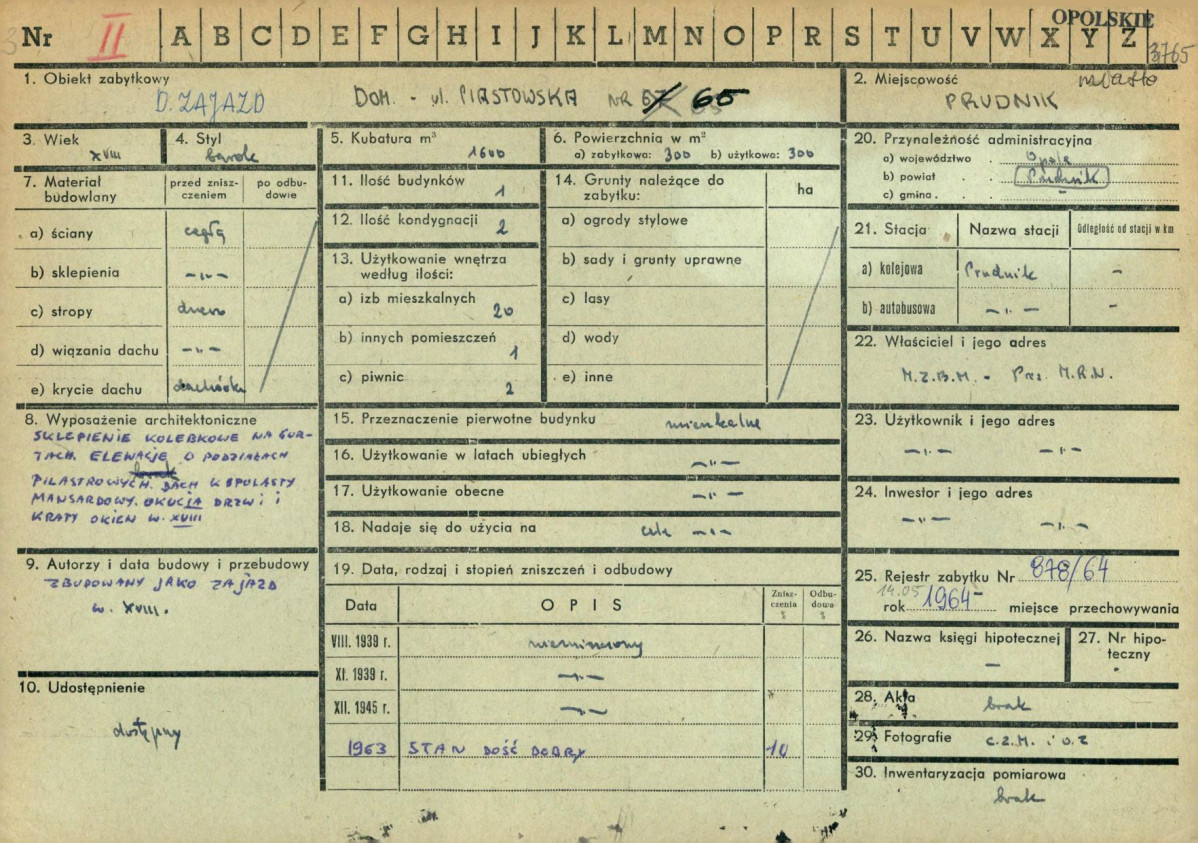 OPOLSKIE
Nr II A B C D E F G H I J K L M N O P R S T U V W X Y Z
3765
1. Obiekt zabytkowy
D. ZAJAZD DOM. - ul. PIASTOWSKA NR 65
2. Miejscowość miasto
PRUDNIK
3. Wiek
XVIII
4. Styl
barok
5. Kubatura m³
1600
6. Powierzchnia w m²
a) zabytkowa: 300 b) użytkowa: 300
7. Materiał budowlany
przed zniszczeniem
po odbudowie
a) ściany cegła
b) sklepienia -„-
c) stropy drewno
d) wiązania dachu -„-
e) krycie dachu dachówka
8. Wyposażenie architektoniczne
SKLEPIENIE KOLEBKOWE NA GUR-
TACH. ELEWACJE O PODZIAŁACH
PILASTROWYCH. DACH KOPULASTY
MANSARDOWY. OKUCIA DRZWI I
KRATY OKIEN W. XVIII
9. Autorzy i data budowy i przebudowy
ZBUDOWANY JAKO ZAJAZD
W. XVIII.
10. Udostępnienie
dostępny
11. Ilość budynków 1
12. Ilość kondygnacji 2
13. Użytkowanie wnętrza
według ilości:
a) izb mieszkalnych 20
b) innych pomieszczeń 1
c) piwnic 2
14. Grunty należące do
zabytku:
ha
a) ogrody stylowe
b) sady i grunty uprawne
c) lasy
d) wody
e) inne
15. Przeznaczenie pierwotne budynku mieszkalne
16. Użytkowanie w latach ubiegłych -„-
17. Użytkowanie obecne -„-
18. Nadaje się do użycia na cele -„-
19. Data, rodzaj i stopień zniszczeń i odbudowy
Data OPIS Zniszczenia % Odbudowa %
VIII. 1939 r. niezniszczony
XI. 1939 r. -„-
XII. 1945 r. -„-
1963 STAN DOŚĆ DOBRY 10
20. Przynależność administracyjna
a) województwo . Opole
b) powiat . . Prudnik
c) gmina . . -
21. Stacja Nazwa stacji Odległość od stacji w km
a) kolejowa Prudnik -
b) autobusowa -„- -
22. Właściciel i jego adres
M.Z.B.M. - Prez. M.R.N.
23. Użytkownik i jego adres
-„- -„-
24. Inwestor i jego adres
-„- -„-
25. Rejestr zabytku Nr 878/64
14.05
rok 1964 miejsce przechowywania
26. Nazwa księgi hipotecznej
-
27. Nr hipoteczny
-
28. Akta brak
29. Fotografie C.Z.M. i O.Z
30. Inwentaryzacja pomiarowa
brak